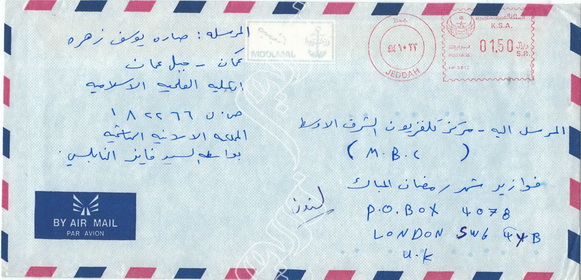 المرسلة: ساره يوسف زهره
عمان - جبل عمان
الكلية العلمية الاسلامية
ص.ب ١٨٢٢٦٦
المملكة الاردنية الهاشمية
بواسطة السيد فايز النابلسي
JEDDAH
K.S.A.
0150
S.R.
المرسل اليه - مركز تلفزيون الشرق الاوسط
(M.B.C)
فوازير شهر رمضان المبارك
لندن
P.O.BOX 4078
LONDON SW6
U.K
BY AIR MAIL
PAR AVION